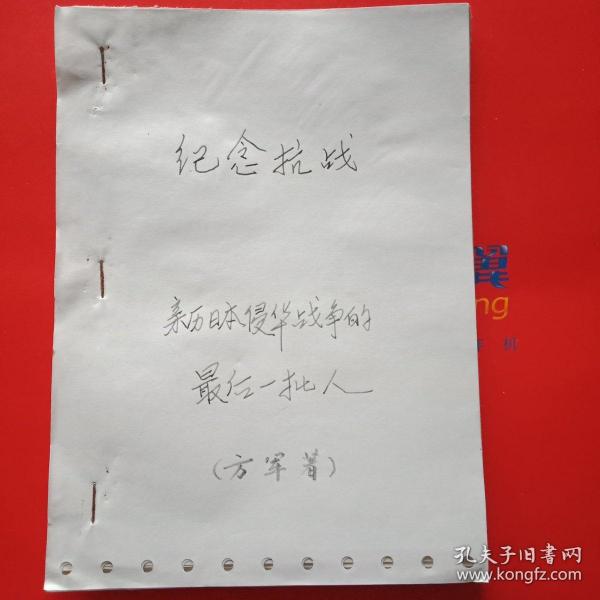 纪念抗战
亲历日本侵华战争的
最后一批人
（方军著）
翼
ng
机
孔夫子旧书网
www.kongfz.com